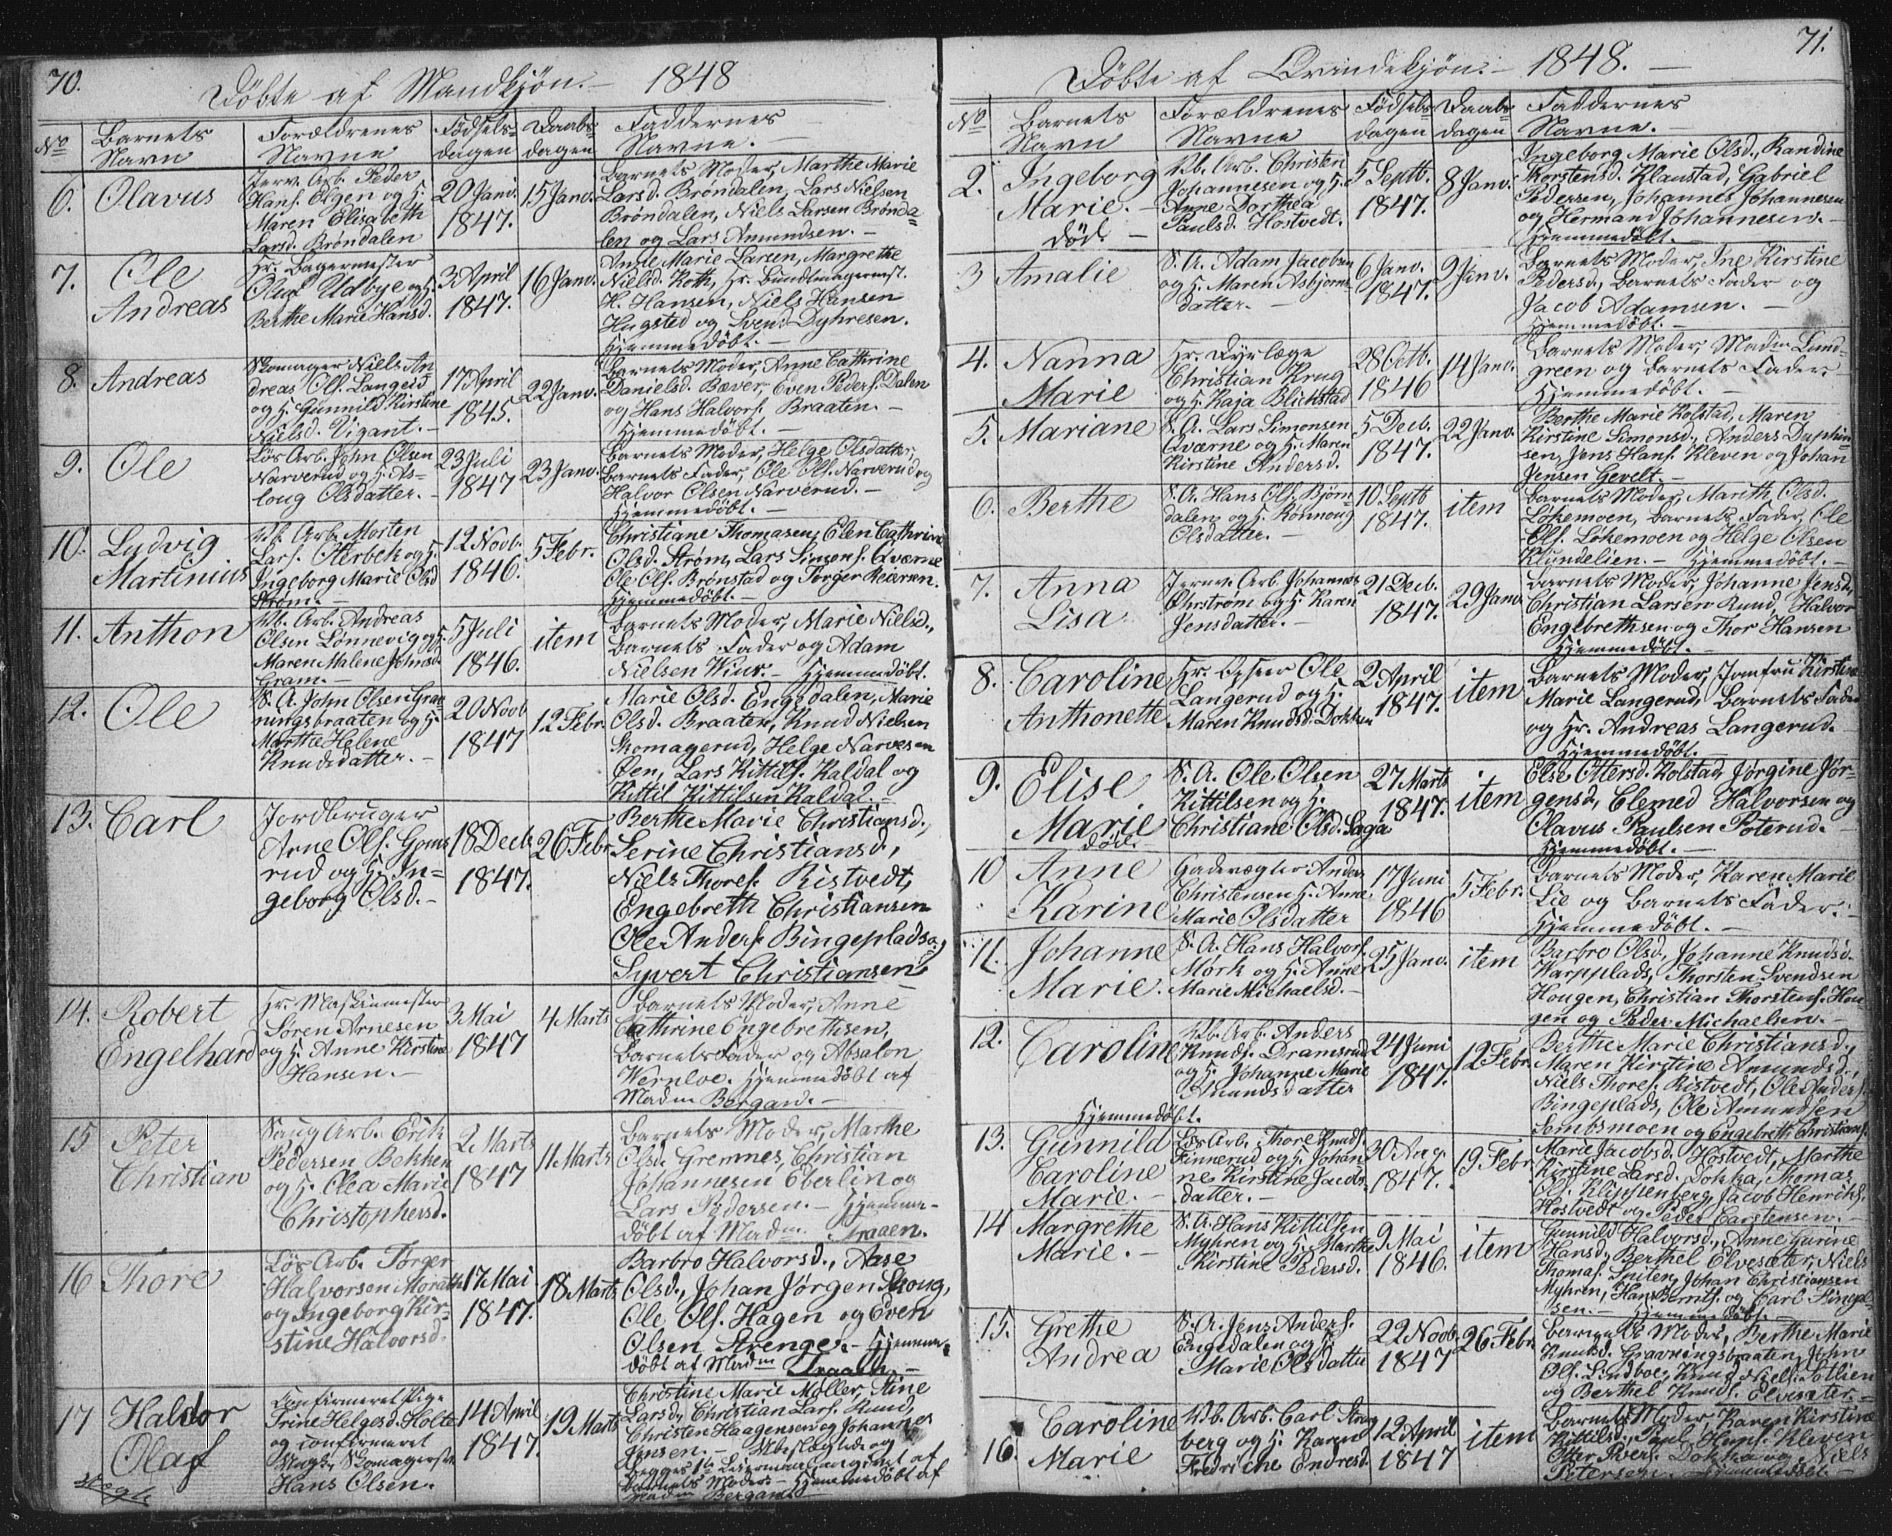 70.
Døbte af Mandkjøn. — 1848
No
Barnets Navn
Forældrenes Navne
Fødsels-dagen
Daabs-dagen
Faddernes Navne. —
6. Olavus
Jernv. Arb. Peder
Hans. Elgen og H.
Maren Elisabeth
Larsd. Brøndalen
20 Janv.
1847.
15 Janv.
Barnets Moder, Marthe Marie
Larsd. Brøndalen, Lars Nielsen
Brøndalen, Niels Larsen Brønda-
len og Lars Amundsen. —
7. Ole
Andreas
Hr. Bagermester
Oluf Udbye og H.
Berthe Marie Hansd.
3 April
1847.
16 Janv.
Anne Marie Larsen, Margrethe
Nielsd. Roth, Hr. Bundtmagermst.
H. Hansen, Niels Hansen
Hugsted og Svend Dyhresen.
Hjemmedøbt. —
8. Andreas
Skomager Niels An-
dreas Ols. Langeid
og H. Gunnild Kirstine
Nielsd. Vigant. —
17 April
1845.
22 Janv.
Barnets Moder, Anne Cathrine
Danielsd. Bæver, Even Peders. Dalen
og Hans Halvors. Braaten. —
Hjemmedøbt. —
9. Ole
Løs Arb. John Olsen
Narverud og H. As-
loug Olsdatter. —
23 Juli
1847
23 Janv.
Barnets Moder, Helge Olsdatter,
Barnets Fader, Ole Ols. Narverud og
Halvor Olsen Narverud. —
Hjemmedøbt. —
10. Ludvig
Martinius
Vb. Arb. Morten
Lars. Oterbek og H.
Ingeborg Marie Olsd.
Strøm. —
12 Novb.
1846.
5 Febr.
Christiane Thomasen, Elen Cathrine
Olsd. Strøm, Lars Simons. Qværne
Ole Ols. Brønstad og Torger Reiersen.
Hjemmedøbt. —
11. Anthon
Vb. Arb. Andreas
Olsen Lønnevig og H.
Maren Malene Johnsd.
Gram. —
5 Juli
1846.
item
Barnets Moder, Marie Nielsd.,
Barnets Fader og Adam
Nielsen Wiur. — Hjemmedøbt.
12. Ole
S. A. John Olsen Grav-
ningsbraaten og H.
Marthe Helene
Knudsdatter. —
20 Novb
1847
12 Febr.
Marie Olsd. Enggdalen, Marie
Olsd. Braaten, Knud Nielsen
Skomagerud, Helge Narvesen
Øen, Lars Kittils. Kaldal og
Kittil Kittilsen Kaldal. —
13. Carl
Jordbruger
Arne Ols. Goms-
rud og H. In-
geborg Olsd. —
18 Decb.
1847.
26 Febr.
Berthe Marie Christiansd.,
Serine Christiansd.,
Niels Thores. Ristvedt,
Engebreth Christiansen
Ole Anders. Bingeplads og
Syvert Christiansen
14. Robert
Engelhard
Hr. Maskinmester
Søren Arnesen
og H. Anne Kirstine
Hansen. —
3 Mai
1847
4 Marts
Barnets Moder, Anne
Cathrine Engebrethsen,
Barnets Fader og Absalon
Wernloe. Hjemmedøbt af
Madm Bergan. —
15 Peter
Christian
Saug Arb. Erik
Pedersen Bekken
og H. Olea Marie
Christophersd.
2 Marts
1847
11 Marts
Barnets Moder, Marthe
Olsd. Gremnes, Christian
Johannesen Eberlin og
Lars Pedersen. — Hjemme-
døbt af Madm Traaen.
16 Thore
Løs Arb. Torger
Halvorsen Morath
og Ingeborg Kir-
stine Halvorsd.
17 Mai
1847.
18 Marts
Barbro Halvorsd., Aase
Olsd., Johan Jørgen Skoug,
Ole Ols. Hagen og Even
Olsen Strenge. — Hjemme-
døbt af Madm Traaen. —
17 Haldor
Olaf
Uægte
Confirmeret Pige
Trine Helgesd. Holte
og confirmeret
Ungk. Skomagersv.
Hans Olsen.
14 April
1847.
19 Marts
Christine Marie Møller, Stine
Larsd., Christian Lars. Ruud,
Christen Haagensen og Johannes
Jensen. — Ubeslægtede og
begges 1te Leiermaal angivet af
Barnets Moder — Hjemmedøbt af
Madm Bergan —
71.
Døbte af Qvindekjøn. — 1848. —
No
Barnets Navn
Forældrenes Navne
Fødsels-dagen
Daabs-dagen
Faddernes Navne. —
2. Ingeborg
Marie. —
død. —
Vb. Arb. Christen
Johannesen og H.
Anne Dorthea
Paulsd. Hostvedt.
5 Septb.
1847.
8 Janv.
Ingeborg Marie Olsd., Randine
Torstensd. Klaustad, Gabriel
Pedersen, Johannes Johannesen
og Herman Johannesen. —
Hjemmedøbt. —
3 Amalie
S. A. Adam Jacobsen
og H. Maren Asbjørns-
datter. —
6 Janv.
1847.
9 Janv.
Barnets Moder, Ine Kirstine
Pedersd., Barnets Fader og
Jacob Adamsen. —
Hjemmedøbt. —
4. Nanna
Marie
Hr. Dyrlæge
Christian Krug
og H. Kaja Blichstad
28 Octb.
1846
14 Janv.
Barnets Moder, Madm Lund-
green og Barnets Fader. —
Hjemmedøbt. —
5. Mariane
S. A. Lars Simonsen
Qværne og H. Maren
Kirstine Andersd.
5 Decb.
1847.
22 Janv.
Berthe Marie Kolstad, Maren
Kirstine Simonsd., Anders Duphin-
sen, Jens Hans. Kleven og Johan
Jensen Gevelt. —
6. Berthe
S. A. Hans Ols. Bjørn-
dalen og H. Rønnoug
Olsdatter. —
10 Septb
1847.
item
Barnets Moder, Marith Olsd.
Løkemoen, Barnets Fader, Ole
Ols. Løkemoen og Helge Olsen
Klundelien. — Hjemmedøbt. —
7. Anna
Lisa.
Jernv. Arb. Johannes
Øhrstrøm og H. Karen
Jensdatter. —
21 Decb.
1847.
29 Janv.
Barnets Moder, Johanne Jensd.,
Christian Larsen Ruud, Halvor
Engebrethsen og Thor Hansen
Hjemmedøbt. —
8. Caroline
Anthonette
Hr. Opseer Ole
Langerud og H.
Maren Knudsd. Dokken
2 April
1847.
item
Barnets Moder, Jomfru Kirstine
Marie Langerud, Barnets Fader
og Hr. Andreas Langerud.
Hjemmedøbt. —
9. Elise
Marie
død.
S. A. Ole Olsen
Kittilsen og H.
Christiane Olsd. Saga
27 Marts
1847.
item
Else Ottersd. Kolstad, Jørgine Jør-
gensd., Clemed Halvorsen og
Olavus Paulsen Poterud. —
Hjemmedøbt. —
10 Anne
Karine
Gadevægter Anders
Christensen H. Anne
Marie Olsdatter
17 Juni
1846
5 Febr.
Barnets Moder, Karen Marie
Lie og Barnets Fader. —
Hjemmedøbt. —
11. Johanne
Marie.
S. A. Hans Halvors.
Mørk og H. Anne
Marie Michaelsd. —
25 Janv.
item
Barbro Olsd., Johanne Knudsd.
Warpplads, Thorsten Svendsen
Hougen, Christian Thorstens. Hou-
gen og Peder Michaelsen. —
12. Caroline
Hjemmedøbt.
Vb. Arb. Anders
Knuds. Dramsrud
og H. Johanne Marie
Amundsdatter
24 Juni
1847.
12 Febr.
Berthe Marie Christiansd.,
Maren Kirstine Amundsd.,
Niels Thores. Ristvedt, Ole Anders.
Bingeplads, Ole Amundsen
Tembsmoen og Engebreth Christians.
13. Gunnild
Caroline
Marie. —
Løs Arb. Thore Knuds.
Finnerud og H. Johan-
ne Kirstine Jacobs-
datter. —
30 Aug.
1847.
19 Febr.
Marie Jacobsd. Hostvedt, Marthe
Kirstine Larsd. Dokka, Thomas
Ols. Klippenberg, Jacob Henriks.
Hostvedt og Peder Carstensen. —
14 Margrethe
Marie. —
S. A. Hans Kittilsen
Myhren og H. Marthe
Kirstine Pedersd.
9 Mai
1846.
item
Gunnild Halvorsd., Anne Gurine
Hansd., Berthel Elvesæter, Niels
Thomas. Sniten, Johan Christiansen
Myhren, Hans Berntsen og Carl
sen. — Hjemmedøbt. —
15. Grethe
Andrea
S. A. Jens Anders.
Engedalen og H.
Marie Olsdatter
22 Novb.
1847
26 Febr.
Barnets Moder, Berthe Marie
Knudsd. Gravningsbraaten, John
Ols. Lindboe, Knud Niels. Sollien
og Berthel Knuds. Elvesæter. —
16. Caroline
Marie
Vb. Arb. Carl Strøg-
berg og H. Karen
Fredriche Endresd.
12 April
1847
item
Barnets Moder, Karen Kirstine
Kittilsd., Paul Hans. Kleven
Otter Ivers. Dokka og Niels
Petersen. Hjemmedøbt. —